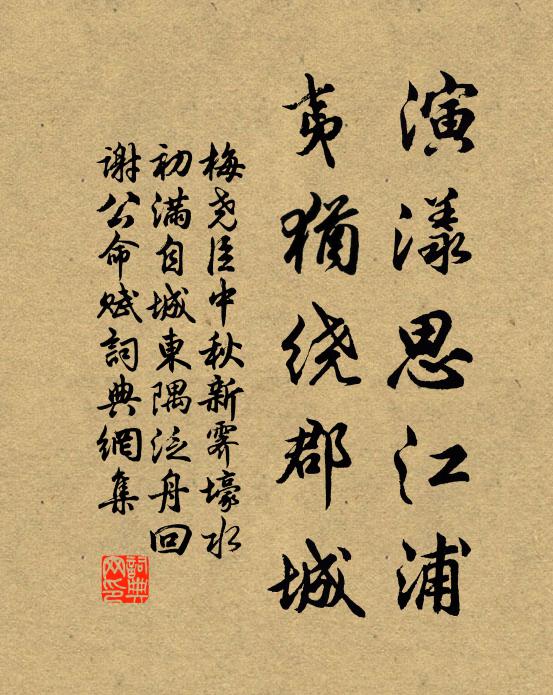 演漾思江浦
夷犹绕郡城
梅尧臣中秋新霁壕水
初满自城東隅泛舟回
谢公命赋詞典網集
詞典
网印